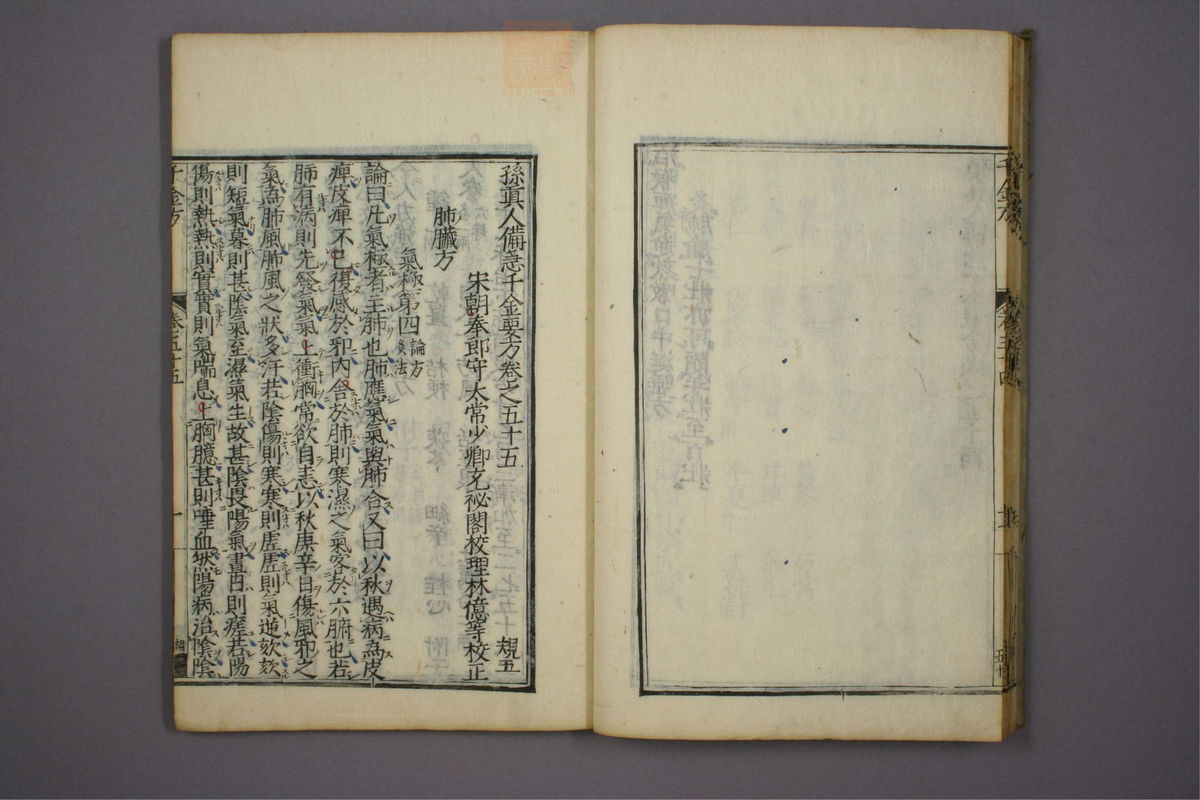 孫眞人備急千金要方卷之五十五 規五
宋朝奉郎守太常少卿充祕閣校理林億等校正
肺臟方
氣極第四 論方灸法
論曰凡氣極者主肺也肺應氣氣與肺合又曰以秋遇病為皮
痺皮痺不已復感於邪內舍於肺則寒濕之氣客於六腑也若
肺有病則先發氣氣上衝胸常欲自恚以秋庚辛日傷風邪之
氣為肺風肺風之狀多汗若陰傷則寒寒則虛虛則氣逆欬欬
則短氣暮則甚陰氣至濕氣生故甚陰畏陽氣晝日則瘥若陽
傷則熱熱則實實則氣喘息上胸臆甚則唾血然陽病治陰陰
千金方 卷五十五 一